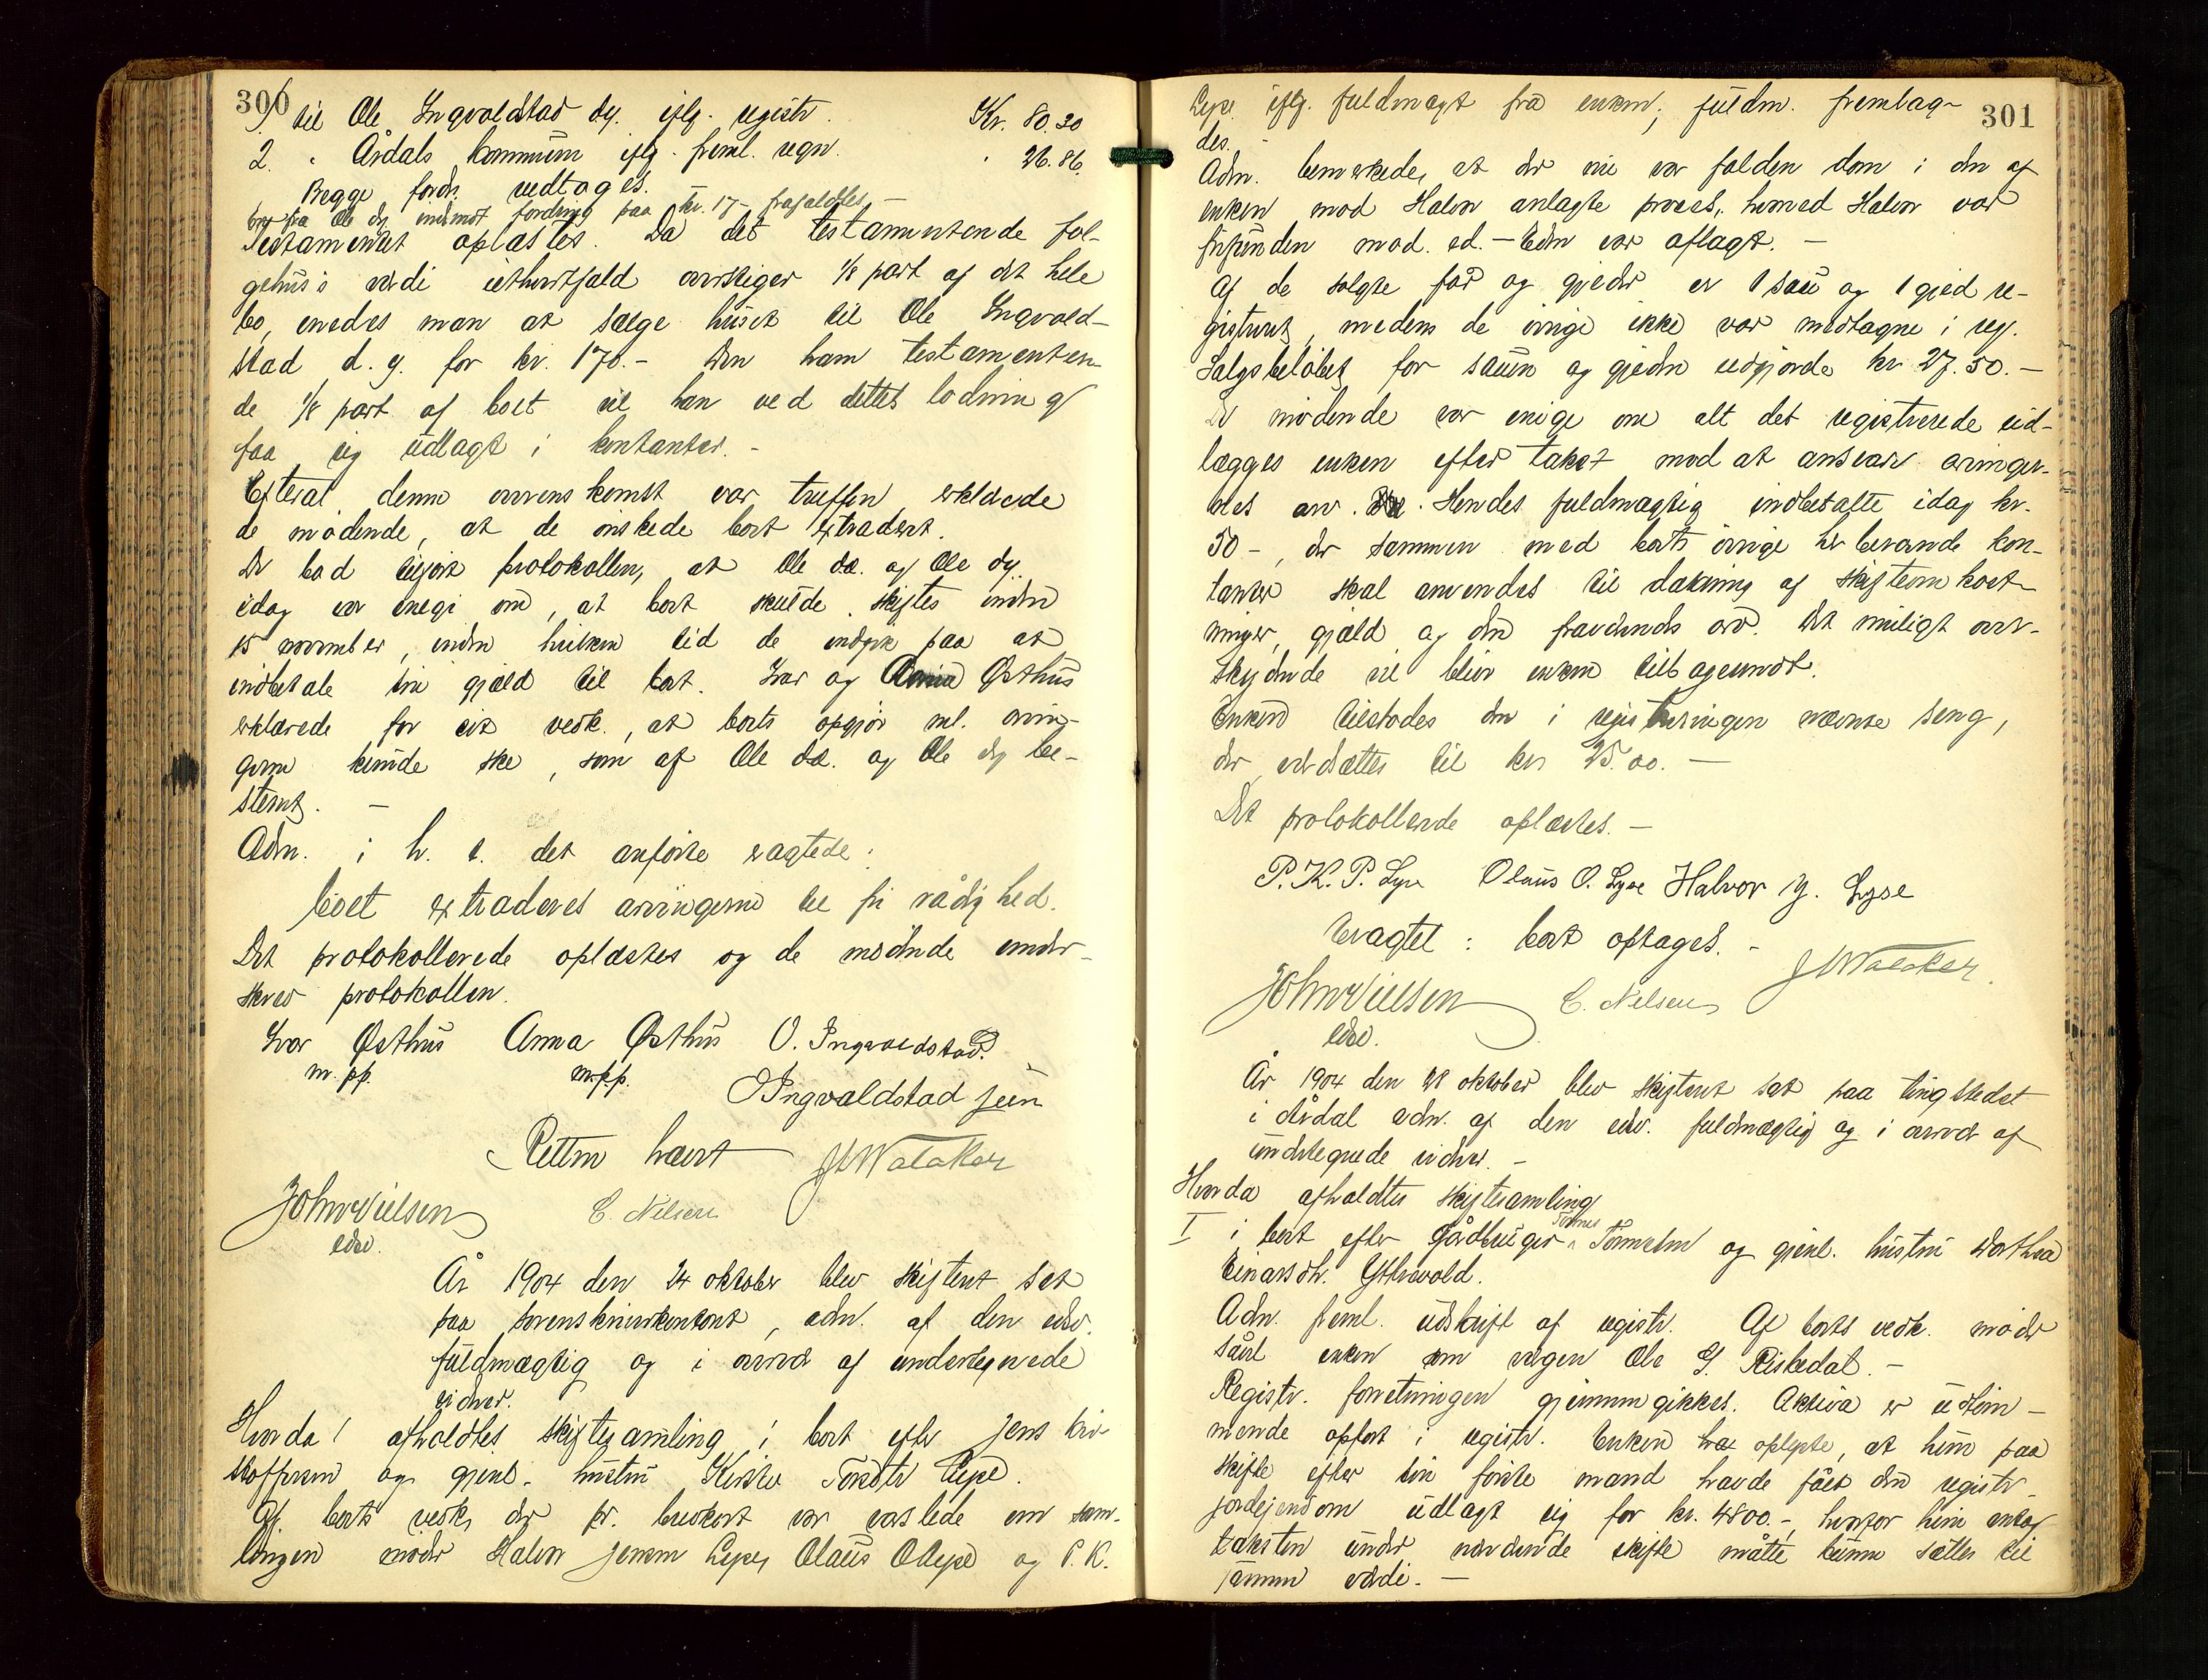 300
1 til Ole Ingvaldstad dy. iflg. registr. Kr. 80.20
2. " Årdals kommune iflg. freml. regn. " 26.86.
Begge fordr. vedtages.
fra Ole dy. indmeldt fordring paa kr. 17 - frafaldtes -
Testamentet oplæstes. Da det testamenterede fol-
gehus's værdi iethvertfald overstiger 1/8 part af det hele
bo, enedes man at sælge huset til Ole Ingvald-
stad d. y. for kr. 170.- Den ham testamentere-
de 1/8 part af boet vil han ved dettes lodning
faa sig udlagt i kontanter. -
Efterat denne overenskomst var truffen erklærede
de mödende, at de önskede boet extraderet.
De bad tilfört protokollen, at Ole dæ. og Ole dy.
idag var enige om, at boet skulde skiftes inden
15 november, inden hvilken tid de indgik paa at
indbetale sin gjæld til boet. Ivar og Anna Østhus
erklærede for sit vedk., at boets opgjör ml. arvin-
gerne kunde ske, som af Ole dæ. og Ole dy be-
stemt. -
Adm. i h. t. det anförte eragtede:
boet extraderes arvingerne til fri rådighed.
Det protokollerede oplæstes og de mödende under-
skrev protokollen.
Ivar Østhus Anna Østhus O. Ingvaldstad.
m. pp. m.p.p.
O Ingvaldstad jun
Retten hævet J N Walaker
John Nielsen C. Nilsen
edsv.
År 1904 den 24 oktober blev skifteret sat
paa sorenskriverkontoret, adm. af den edsv.
fuldmægtig og i overvær af undertegnede
vidner.
Hvorda! afholdtes skiftesamling i boet efter Jens Kri-
stoffersen og gjenl. hustru Kirsten Tordtr Lyse.
Af boets vedk, der pr. brevkort var varslede om sam-
lingen mödte Halvor Jensen Lyse, Olaus O Lyse og P. K.
301
Lyse iflg. fuldmagt fra enken; fuldm. fremlag-
des. -
Adm. bemærkede, at der nu var falden dom i den af
enken mod Halvor anlagte proces, hvorved Halvor var
frifunden mod ed. - Eden var aflagt. -
Af de solgte får og gjeder er 1 sau og 1 gjed re-
gistreret, medens de övrige ikke var medtagne i reg.
Salgsbelöbet for sauen og gjeden udgjorde kr. 27.50. -
De mödende var enige om alt det registrerede ud-
lægges enken efter takst mod at ansvare arvinger-
nes arv. Hendes fuldmægtig indbetalte idag kr.
50 -, der sammen med boets övrige her beroende kon-
tanter skal anvendes til dækning af skifteomkost-
ninger, gjæld og den fraværendes arv. Det muligt over-
skydende vil bliver enken tilbagesendt.
Enken tilstodes den i registreringen nævnte seng,
der værdsættes til kr 25.00. -
Det protokollerede oplæstes. -
P. K. P. Lyse Olaus O. Lyse Halvor J. Lyse
Eragtet: boet optages. -
J N Walaker
John Nielsen C. Nilsen
edsv.
År 1904 den 28 oktober blev skifteret sat paa tingstedet
i Årdal adm. af den edsv. fuldmægtig og i overvær af
undertegnede vidner. -
Hvorda afholdtes skiftesamling
I i boet efter Gårdbruger Tönnes Tönnesen og gjenl. hustru Dorthea
Einarsdtr. Ytthevold.
Adm. freml. udskrift af registr. Af boets vedk. mödte
såvel enken som vergen Ole G. Riskedal. -
Registr. forretningen gjennemgikkes. Aktiva er udtöm-
mende opfört i registr. Enken oplyste, at hun paa
skifte efter sin förste mand havde fået den registr.
jordejendom udlagt sig for kr. 4800.-, hvorfor hun antog
taksten under nærværende skifte måtte kunne sættes til
samme værdi. -